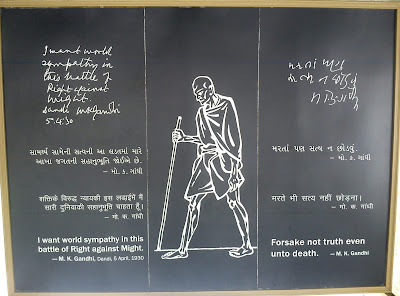 I want world
sympathy in
this battle of
Right against
Might.
Dandi MKGandhi
5.4.30
સામર્થ્ય સામેની સત્યની આ લડતમાં મારે
આખા જગતની સહાનુભૂતિ જોઈએ છે.
– મો. ક. ગાંધી
शक्तिके विरुद्ध न्यायकी इस लडाईमें मैं
सारी दुनियाकी सहानुभूति चाहता हूँ।
– मो. क. गांधी
I want world sympathy in this
battle of Right against Might.
– M. K. Gandhi, Dandi, 5 April, 1930
મરતાં પણ
સત્ય ન છોડવું
મો. ક. ગાંધી
મરતાં પણ સત્ય ન છોડવું.
– મો. ક. ગાંધી
मरते भी सत्य नहीं छोड़ना।
– मो. क. गांधी
Forsake not truth even
unto death. – M. K. Gandhi